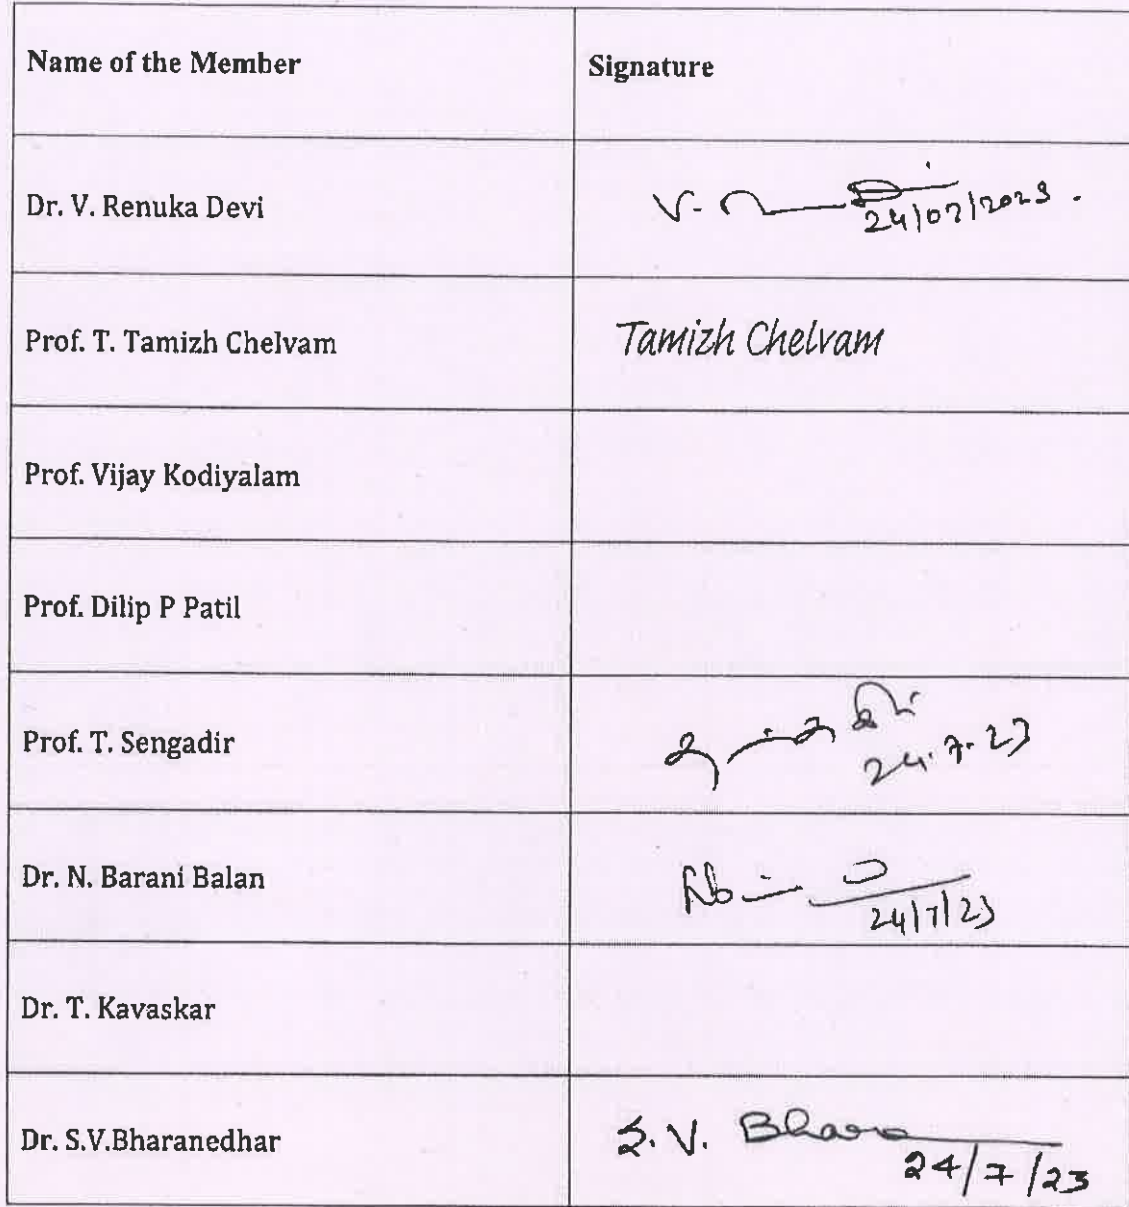 Name of the Member
Signature
Dr. V. Renuka Devi
V.
24/07/2023.
Prof. T. Tamizh Chelvam
Tamizh Chelvam
Prof. Vijay Kodiyalam
Prof. Dilip P Patil
Prof. T. Sengadir
24.7.23
Dr. N. Barani Balan
24/7/23
Dr. T. Kavaskar
Dr. S.V.Bharanedhar
S.V. Bhara
24/7/23